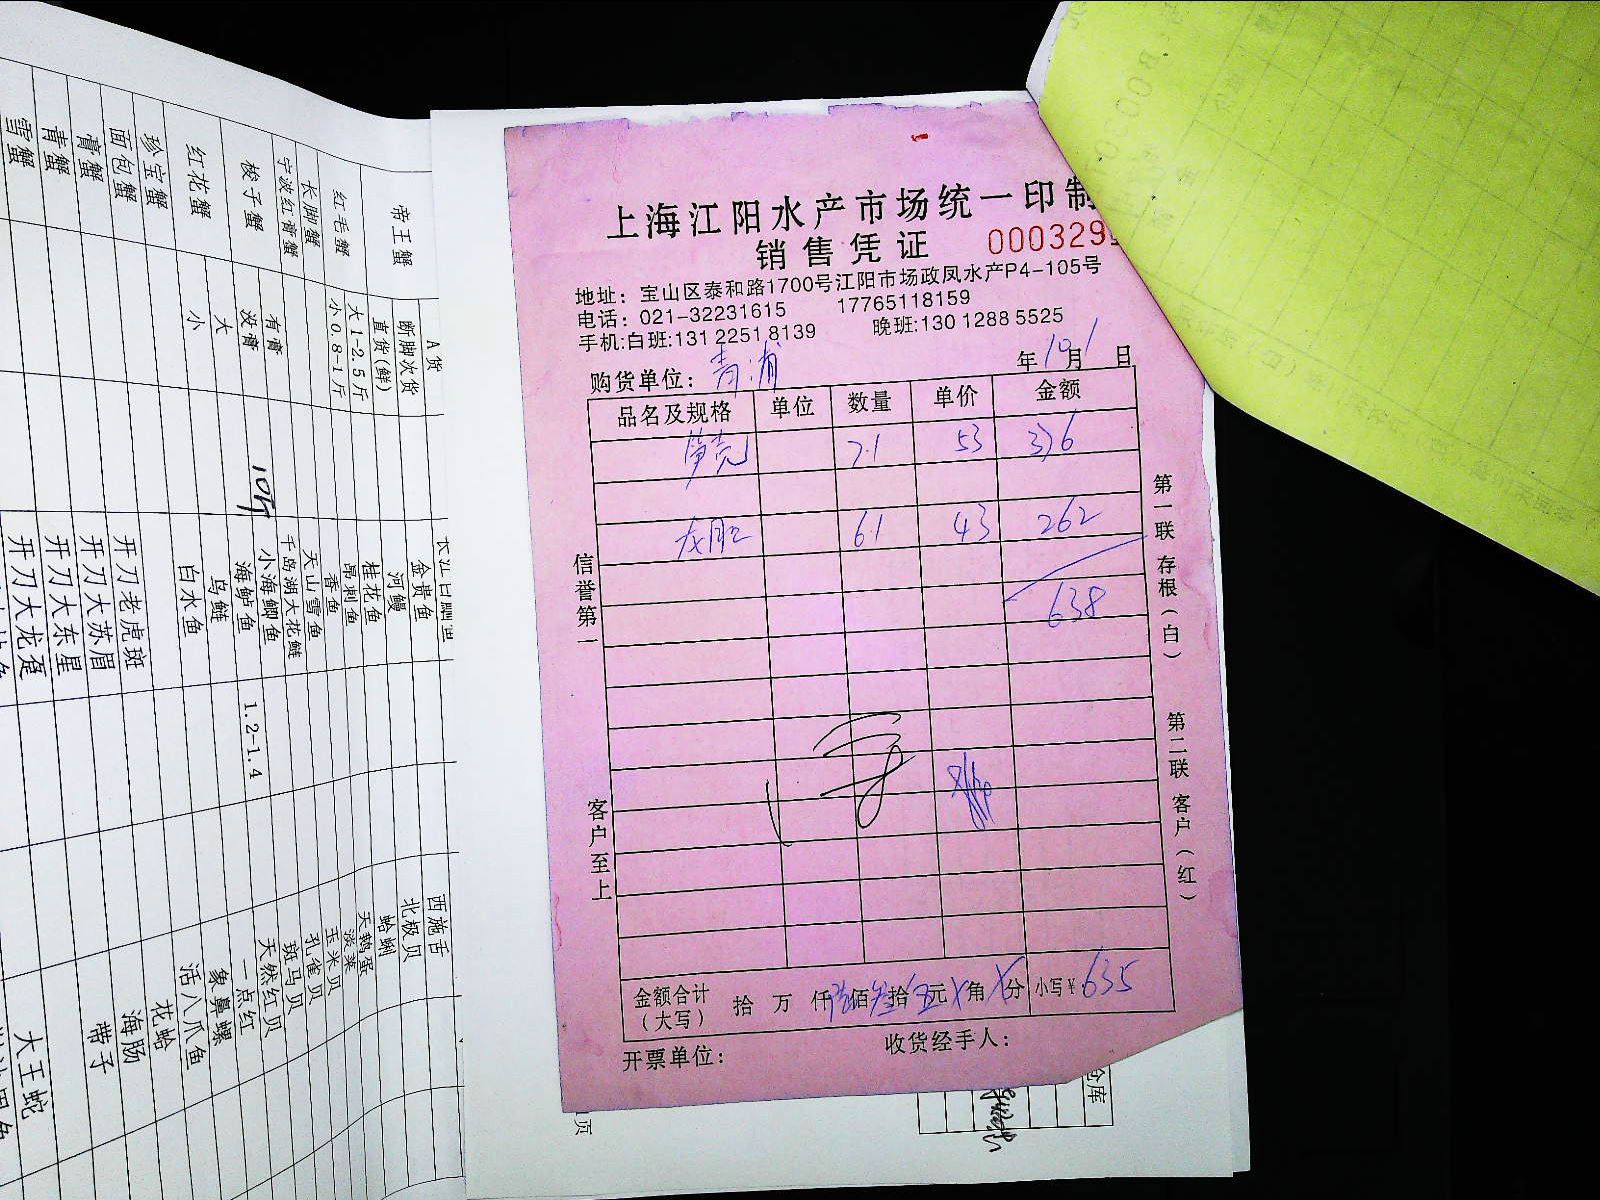 上海江阳水产市场统一印制
销售凭证 000329
地址：宝山区泰和路1700号江阳市场政凤水产P4-105号
电话：021-32231615 17765118159
手机:白班:131 2251 8139 晚班:130 1288 5525
购货单位：青浦 年10月1日
品名及规格 单位 数量 单价 金额
笋壳 7.1 53 376
龙胆 6.1 43 262
638
信誉第一
客户至上
第一联 存根（白）
第二联 客户（红）
金额合计（大写） 拾 万 仟 陆佰叁拾伍元 角 分 小写￥635
开票单位： 收货经手人：
仓库
页
A货
帝王蟹 断脚次货
直货(鲜)
红毛蟹 大1-2.5斤
小0.8-1斤
长脚蟹
宁波红膏蟹
梭子蟹 有膏
没膏
红花蟹 大
小
珍宝蟹
面包蟹
膏蟹
青蟹
雪蟹
金贵鱼
河鳗
桂花鱼
昂刺鱼
香鱼
天山雪鱼
千岛湖大花鲢
小海鲫鱼
海鲈鱼 1.2-1.4
乌鲢
白水鱼
开刀老虎斑
开刀大苏眉
开刀大东星
开刀大龙趸
西施舌
北极贝
蛤蜊
天鹅蛋
淡菜
玉米贝
孔雀贝
斑马贝
天然红贝
一点红
象鼻螺
活八爪鱼
花蛤
海肠
带子
大王蛇